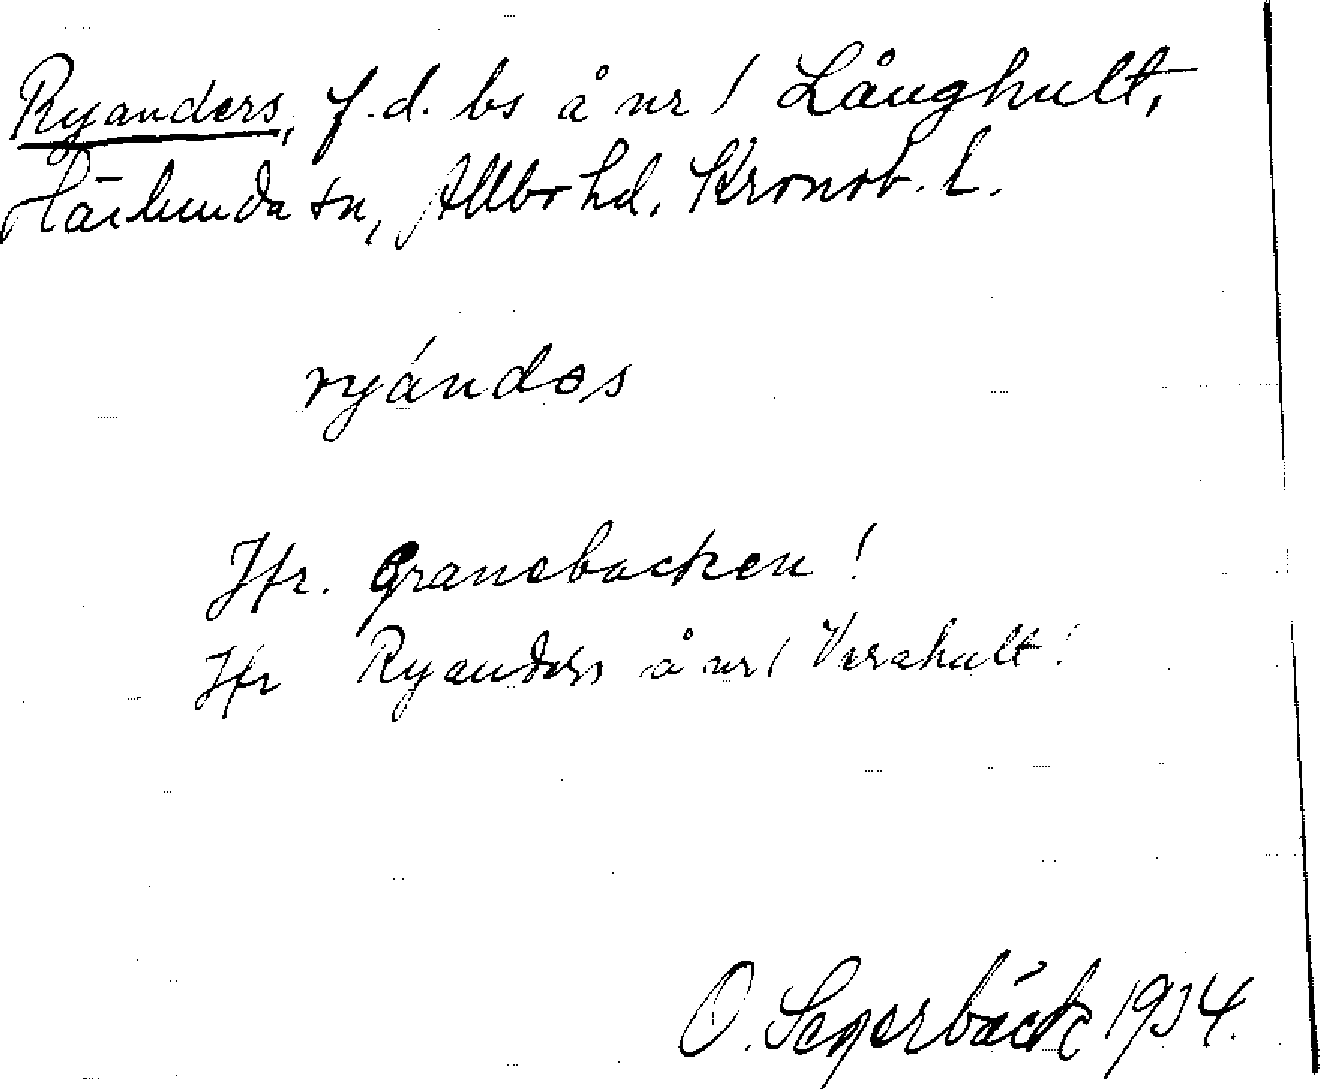 Ryanders, f.d. bs å nr 1 Långhult,
Härlunda sn, Allbo hd. Kronob. L.
ryándəs
Jfr. Granebacken!
Jfr Ryanders å nr 1 Verahult!
O. Segerbäck 1934.